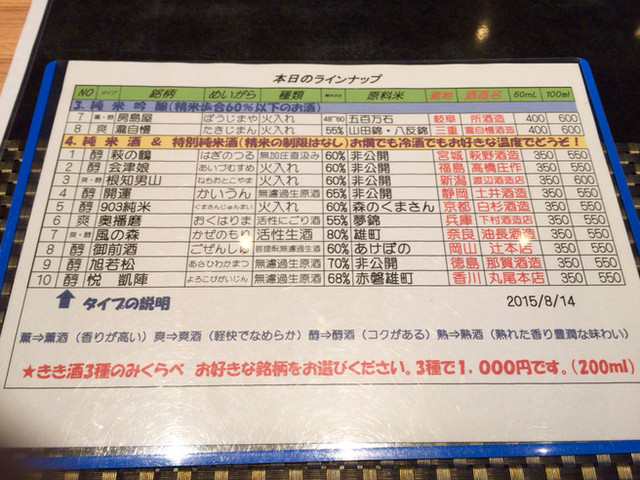 本日のラインナップ
NO タイプ 銘柄 めいがら 種類 原料米 産地 酒造名 60mL 100ml
3.純米吟醸(精米歩合60%以下のお酒)
7 薫・爽 房島屋 ぼうじまや 火入れ 48~60 五百万石 岐阜 所酒造 400 600
8 爽 瀧自慢 たきじまん 火入れ 55% 山田錦・八反錦 三重 瀧自慢酒造 400 600
4.純米酒 & 特別純米酒(精米の制限はなし)お燗でも冷酒でもお好きな温度でどうぞ!
1 醇 萩の鶴 はぎのつる 無加圧直汲み 60% 非公開 宮城 萩野酒造 350 550
2 醇 会津娘 あいづむすめ 火入れ 60% 非公開 福島 高橋庄作 350 550
3 爽・醇 根知男山 ねちおとこやま 火入れ 60% 非公開 新潟 渡辺酒造店 400 600
4 醇 開運 かいうん 無濾過生原酒 65% 非公開 静岡 土井酒造 350 550
5 醇 903純米 くまさんじゅんまい 火入れ 60% 森のくまさん 京都 白杉酒造 350 550
6 爽 奥播磨 おくはりま 活性にごり酒 55% 夢錦 兵庫 下村酒造店 350 550
7 爽・醇 風の森 かぜのもり 活性生酒 80% 雄町 奈良 油長酒造 350 550
8 醇 御前酒 ごぜんしゅ 菩提酛無濾過生酒 65% あけぼの 岡山 辻本店 350 550
9 醇 旭若松 あさひわかまつ 無濾過生原酒 70% 非公開 徳島 那賀酒造 350 550
10 醇 悦 凱陣 よろこびがいじん 無濾過生原酒 68% 赤磐雄町 香川 丸尾本店 350 550
タイプの説明 2015/8/14
薫⇒薫酒(香りが高い) 爽⇒爽酒(軽快でなめらか) 醇⇒醇酒(コクがある) 熟⇒熟酒(熟れた香り豊潤な味わい)
★きき酒3種のみくらべ お好きな銘柄をお選びください。3種で1,000円です。(200ml)